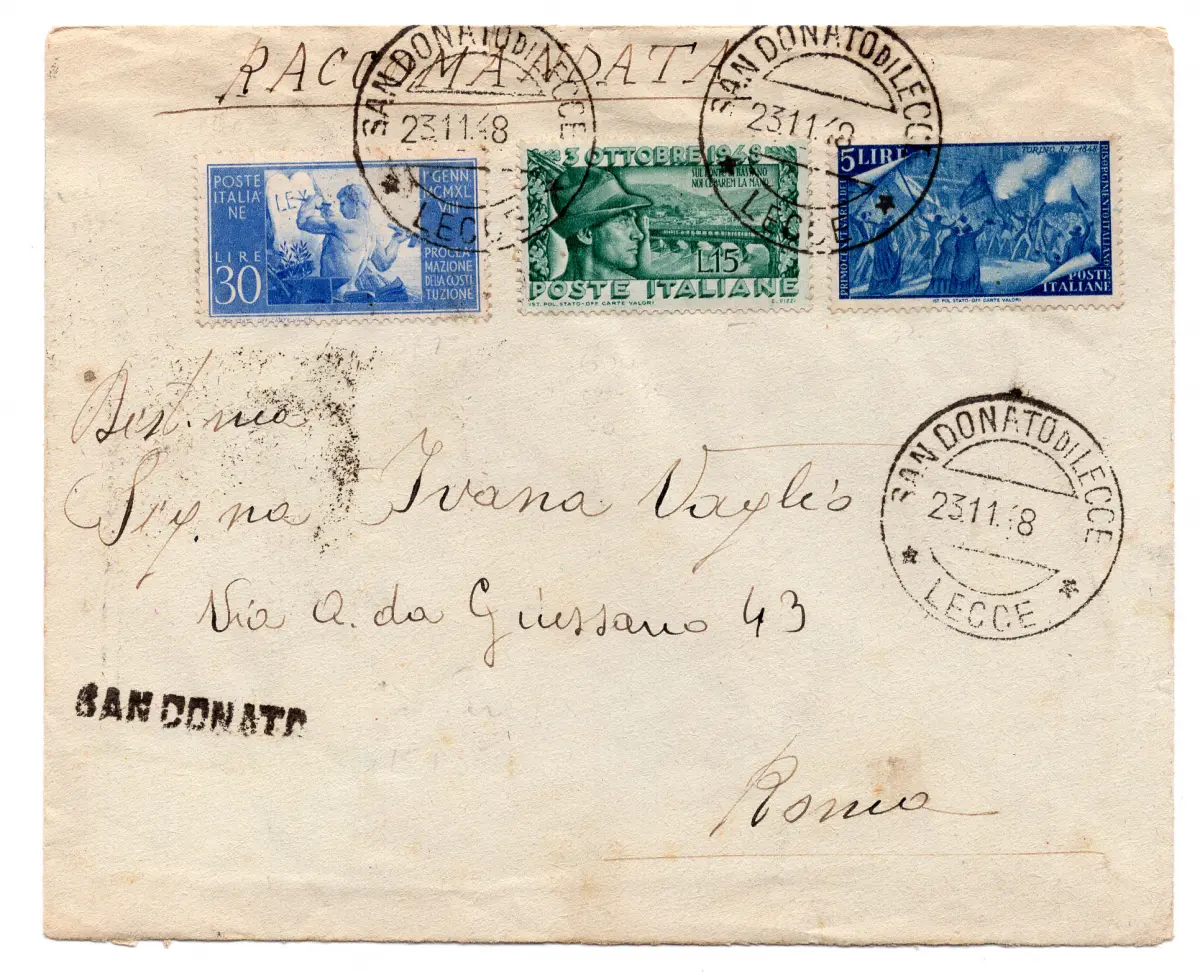 RACCOMANDATA
SAN DONATO DI LECCE
23.11.48
LECCE
SAN DONATO DI LECCE
23.11.48
LECCE
POSTE
ITALIA
NE
LEX
LIRE
30
1° GENN.
MCMXL
VIII
PROCLA
MAZIONE
DELLA COSTI
TUZIONE
3 OTTOBRE 1948
SUL PONTE DI BASSANO
NOI CI DAREM LA MANO
L.15
POSTE ITALIANE
IST. POL. STATO-OFF. CARTE VALORI
E. PIZZI
5 LIRE
TORINO 8-II-1848
PRIMO CENTENARIO DEL
RISORGIMENTO ITALIANO
POSTE
ITALIANE
IST. POL. STATO-OFF. CARTE VALORI
SAN DONATO DI LECCE
23.11.48
LECCE
Sig.na Ivana Vaglio
Via A. da Giussano 43
SAN DONATO
Roma